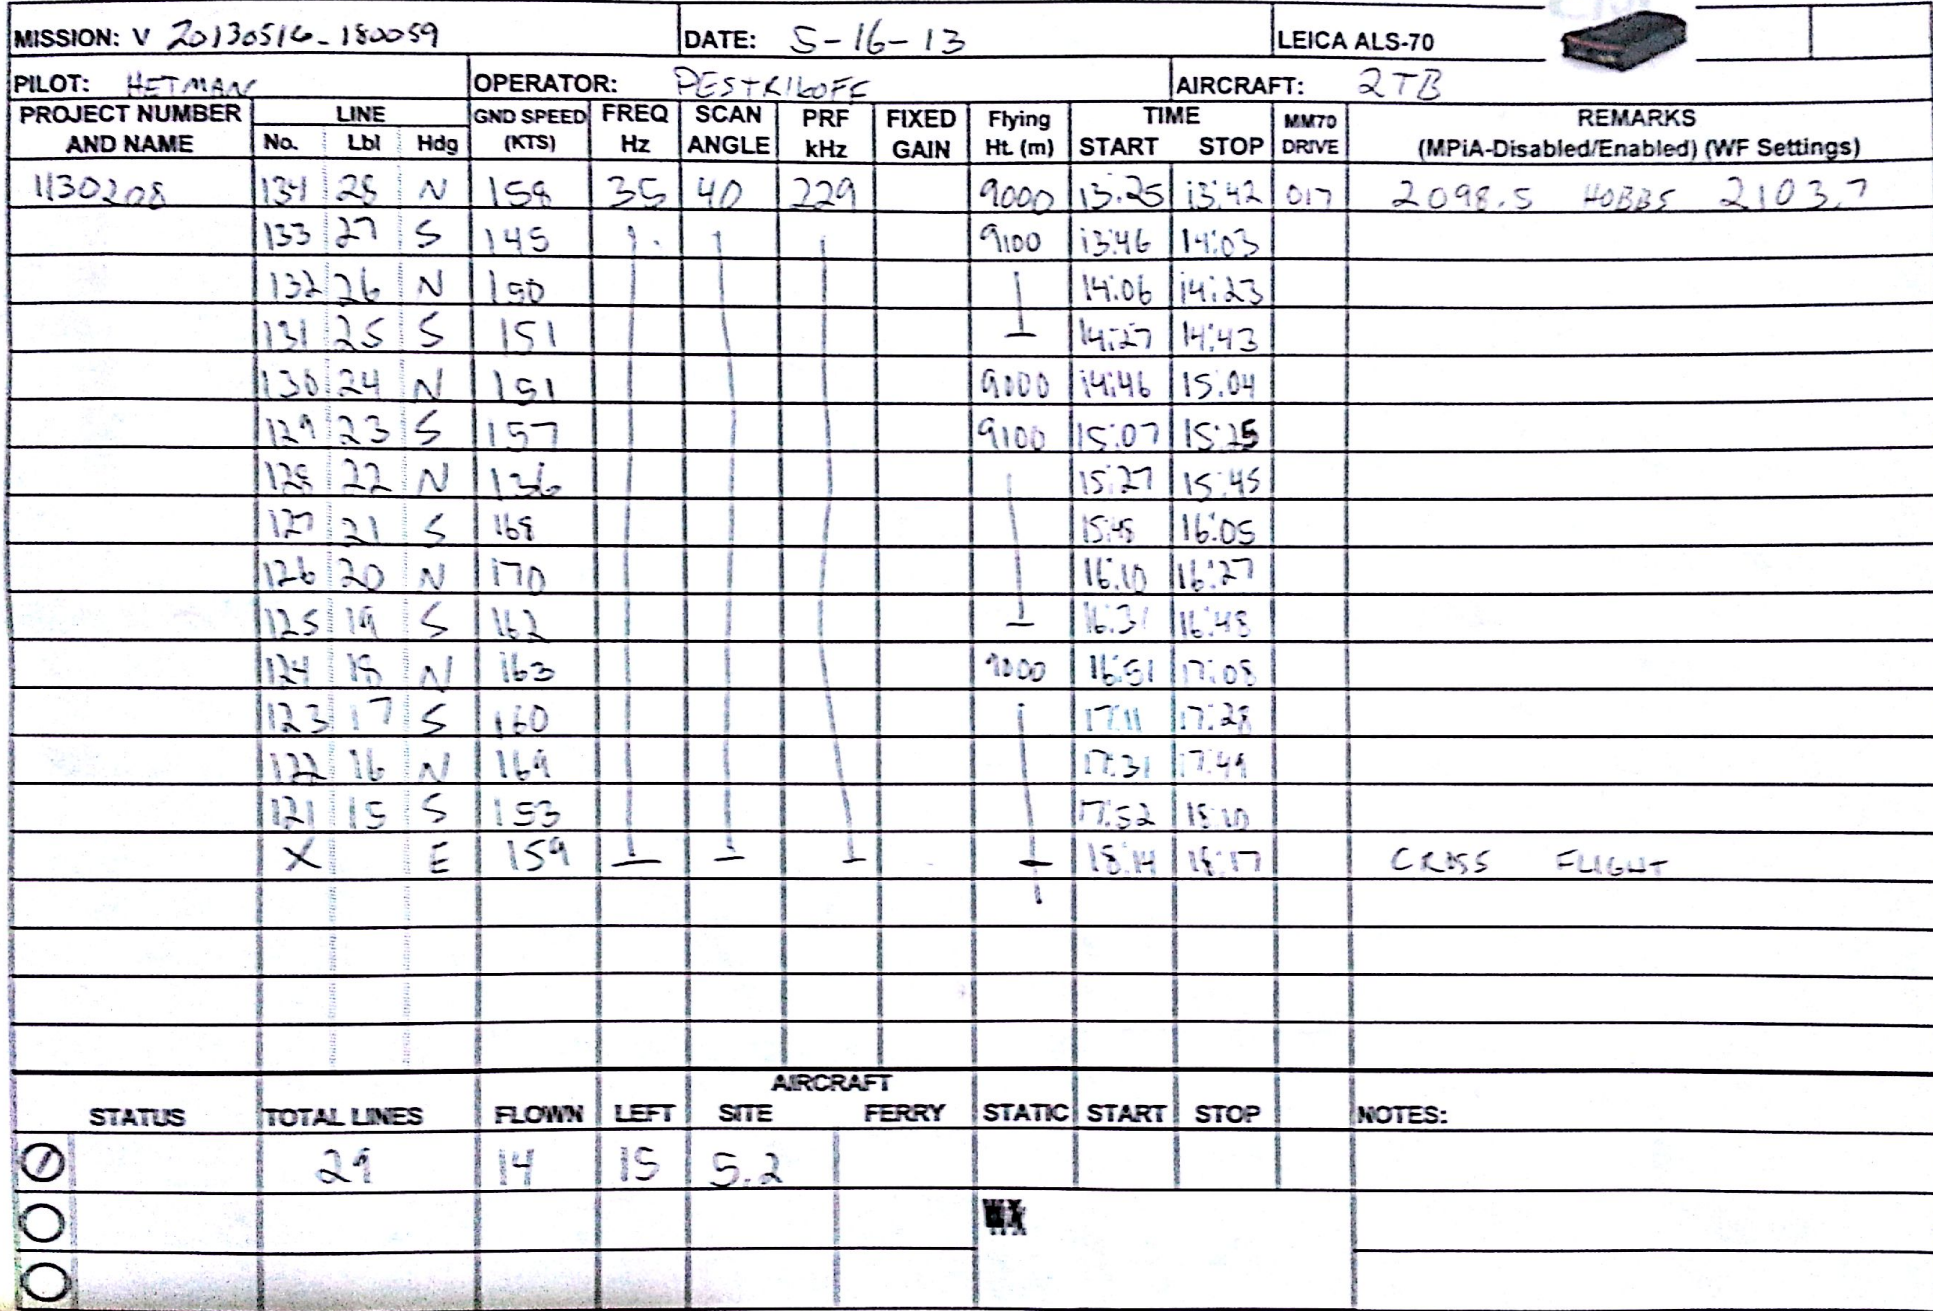 MISSION: V 20130516_180059 DATE: 5-16-13 LEICA ALS-70
PILOT: HETMAN OPERATOR: PESTRIKOFF AIRCRAFT: 2TB
PROJECT NUMBER LINE GND SPEED FREQ SCAN PRF FIXED Flying TIME MM70 REMARKS
AND NAME No. Lbl Hdg (KTS) Hz ANGLE kHz GAIN Ht. (m) START STOP DRIVE (MPiA-Disabled/Enabled) (WF Settings)
1130208 134 28 N 158 35 40 229 9000 13:25 13:42 017 2098.5 HOBBS 2103.7
133 27 S 145 9100 13:46 14:03
132 26 N 150 14:06 14:23
131 25 S 151 14:27 14:43
130 24 N 151 9000 14:46 15:04
129 23 S 157 9100 15:07 15:25
128 22 N 136 15:27 15:45
127 21 S 168 15:48 16:05
126 20 N 170 16:10 16:27
125 19 S 162 16:31 16:48
124 18 N 163 9000 16:51 17:08
123 17 S 160 17:11 17:28
122 16 N 169 17:31 17:49
121 15 S 153 17:52 18:10
X E 159 18:14 18:17 CROSS FLIGHT
AIRCRAFT
STATUS TOTAL LINES FLOWN LEFT SITE FERRY STATIC START STOP NOTES:
29 14 15 5.2
WX